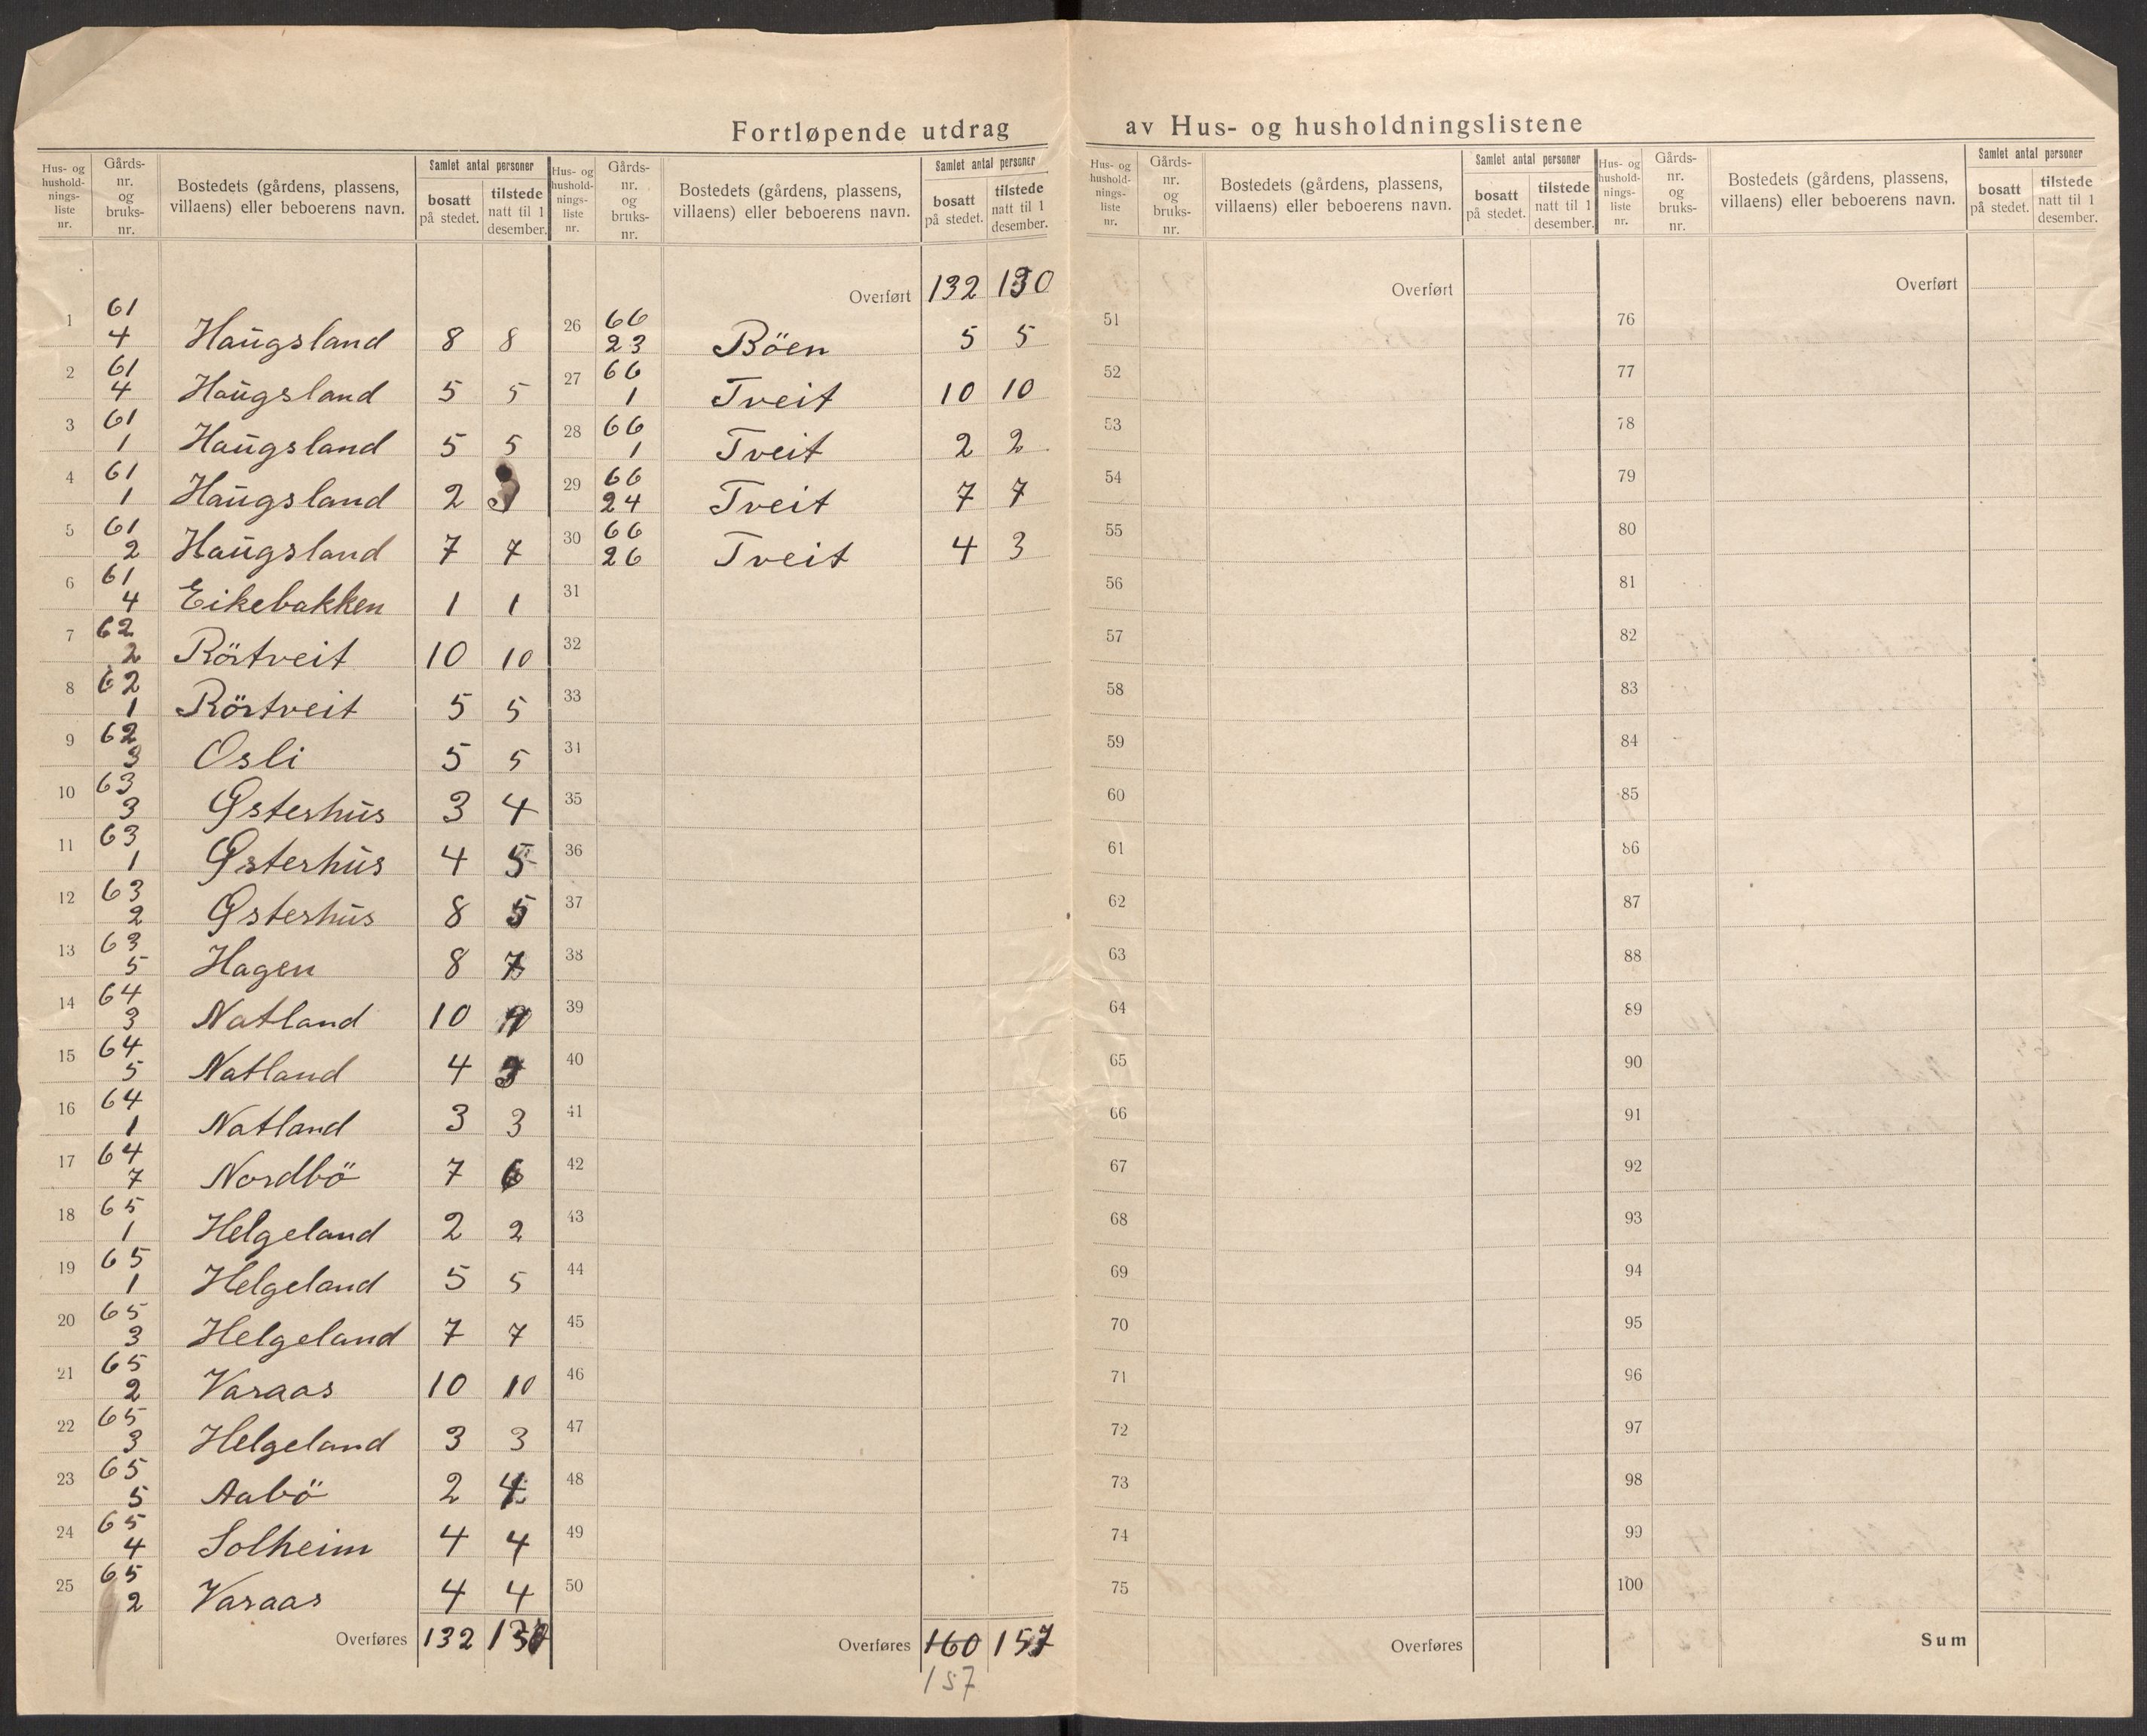 Fortløpende utdrag av Hus- og husholdningslistene
Hus- og hushold-nings-liste nr. Gårds-nr. og bruks-nr. Bostedets (gårdens, plassens, villaens) eller beboerens navn. Samlet antal personer bosatt på stedet. tilstede natt til 1 desember.
1 61 4 Haugsland 8 8
2 61 4 Haugsland 5 5
3 61 1 Haugsland 5 5
4 61 1 Haugsland 2
5 61 2 Haugsland 7 7
6 61 4 Eikebakken 1 1
7 62 2 Rörtveit 10 10
8 62 1 Rörtveit 5 5
9 62 3 Osli 5 5
10 63 3 Østerhus 3 4
11 63 1 Østerhus 4 5
12 63 2 Østerhus 8 5
13 63 5 Hagen 8 7
14 64 3 Natland 10
15 64 5 Natland 4 3
16 64 1 Natland 3 3
17 64 7 Nordbö 7 6
18 65 1 Helgeland 2 2
19 65 1 Helgeland 5 5
20 65 3 Helgeland 7 7
21 65 2 Varaas 10 10
22 65 3 Helgeland 3 3
23 65 5 Aabö 2 4
24 65 4 Solheim 4 4
25 65 2 Varaas 4 4
Overføres 132 130
Hus- og hushold-nings-liste nr. Gårds-nr. og bruks-nr. Bostedets (gårdens, plassens, villaens) eller beboerens navn. Samlet antal personer bosatt på stedet. tilstede natt til 1 desember.
Overført 132 130
26 66 23 Böen 5 5
27 66 1 Tveit 10 10
28 66 1 Tveit 2 2
29 66 24 Tveit 7 7
30 66 26 Tveit 4 3
31
32
33
34
35
36
37
38
39
40
41
42
43
44
45
46
47
48
49
50
Overføres 160 157
157
Hus- og hushold-nings-liste nr. Gårds-nr. og bruks-nr. Bostedets (gårdens, plassens, villaens) eller beboerens navn. Samlet antal personer bosatt på stedet. tilstede natt til 1 desember.
Overført
51
52
53
54
55
56
57
58
59
60
61
62
63
64
65
66
67
68
69
70
71
72
73
74
75
Overføres
Hus- og hushold-nings-liste nr. Gårds-nr. og bruks-nr. Bostedets (gårdens, plassens, villaens) eller beboerens navn. Samlet antal personer bosatt på stedet. tilstede natt til 1 desember.
Overført
76
77
78
79
80
81
82
83
84
85
86
87
88
89
90
91
92
93
94
95
96
97
98
99
100
Sum